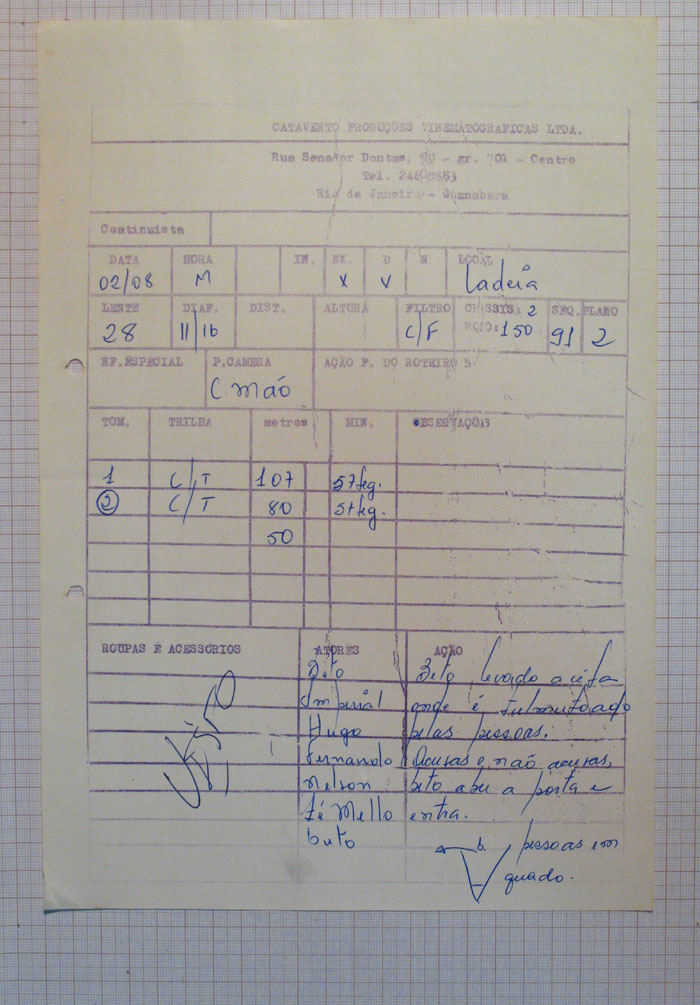 CATAVENTO PRODUÇÕES CINEMATOGRAFICAS LTDA.
Rua Senador Dantas, 20 - gr. 701 - Centro
Tel. 246
Rio de Janeiro - Guanabara
Continuista
DATA HORA IN. EX. D N LOCAL
02/08 M X V Ladeia
LENTE DIAF. DIST. ALTURA FILTRO CHASSIS 2 SEQ. PLANO
28 11/16 C/F 150 91 2
EF.ESPECIAL P.CAMERA AÇÃO F. DO ROTEIRO
C. mão
TOM. TRILHA metros MIN. OBSERVAÇÕES
1 C/T 107 57 seg.
2 C/T 80 51 seg.
50
ROUPAS E ACESSÓRIOS ATORES AÇÃO
Beto Beto levado a
Imperial onde é
Hugo pelas pessoas.
Fernando acusas e não acusas,
Nelson beto abre a porta e
Zé Mello entra.
b. pessoas em